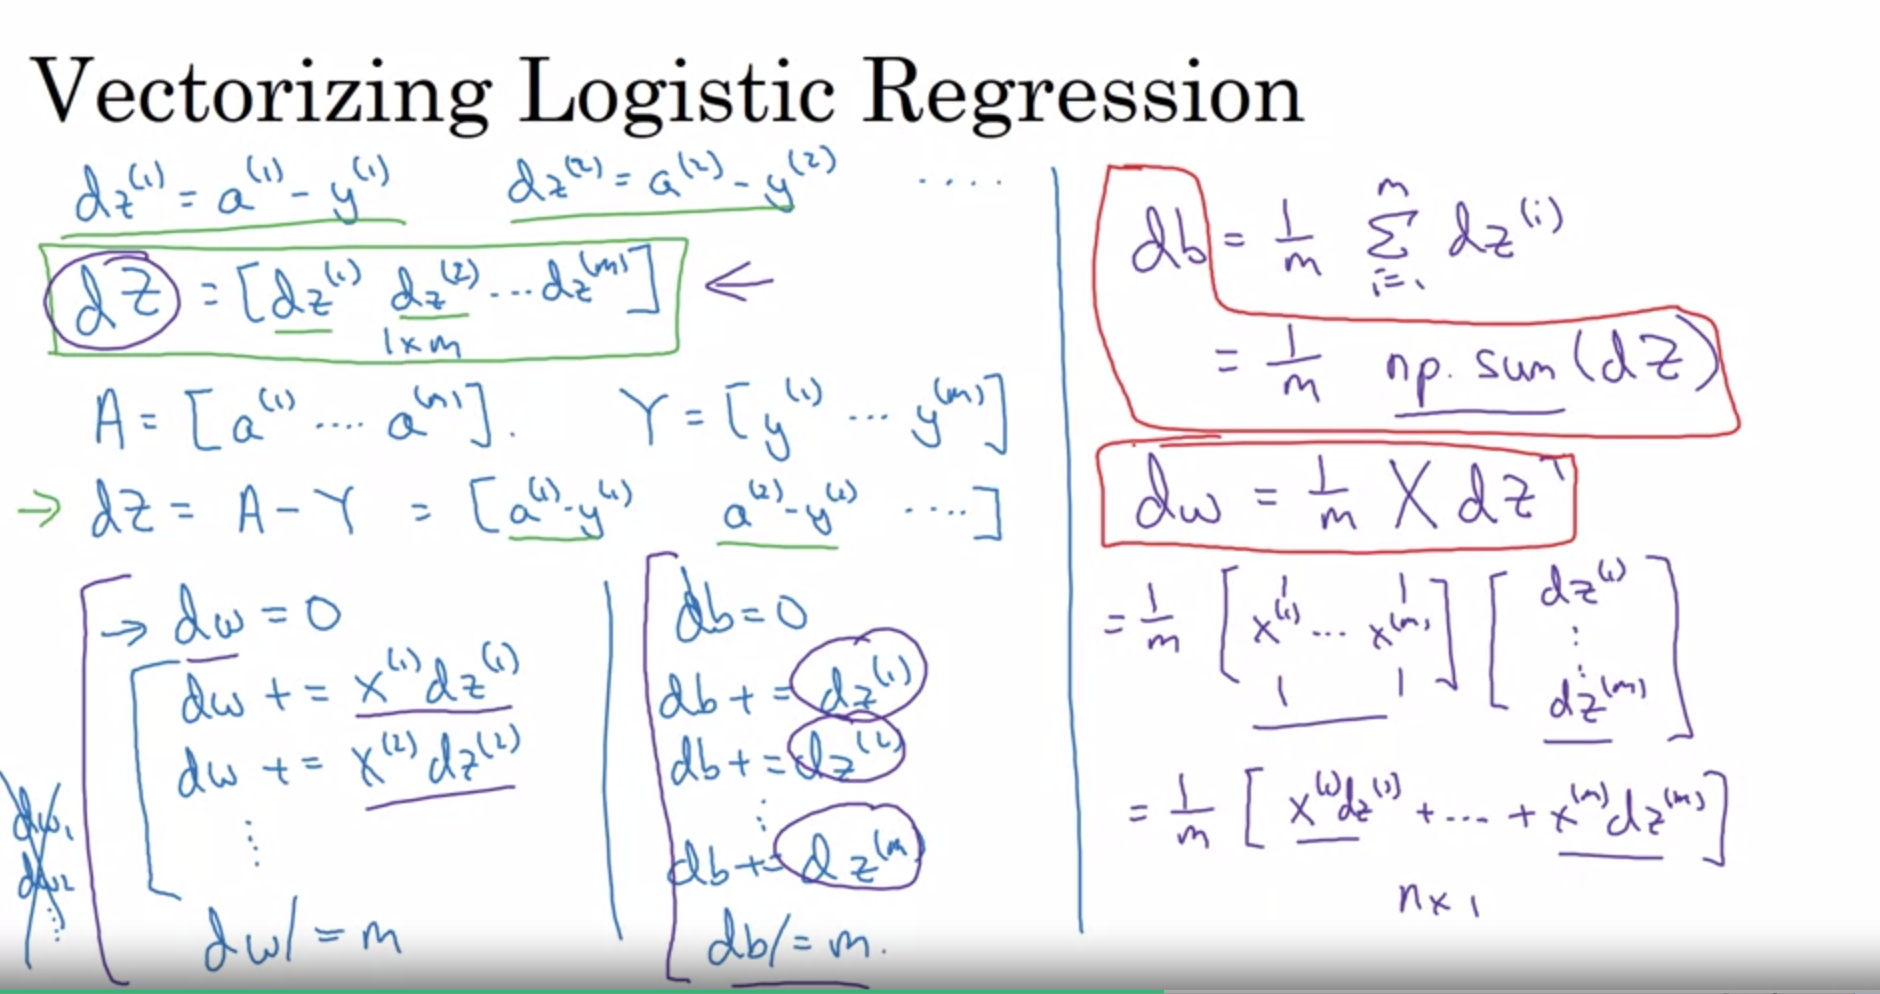 Vectorizing Logistic Regression
dz⁽¹⁾ = a⁽¹⁾ - y⁽¹⁾    dz⁽²⁾ = a⁽²⁾ - y⁽²⁾    ....
dZ = [dz⁽¹⁾ dz⁽²⁾ ... dz⁽ᵐ⁾] ←
1×m
A = [a⁽¹⁾ .... a⁽ᵐ⁾].    Y = [y⁽¹⁾ ... y⁽ᵐ⁾]
→ dZ = A - Y = [a⁽¹⁾-y⁽¹⁾    a⁽²⁾-y⁽²⁾ ....]
→ dw = 0
dw += x⁽¹⁾dz⁽¹⁾
dw += x⁽²⁾dz⁽²⁾
⋮
dw /= m
dw₁
dw₂
⋮
db = 0
db += dz⁽¹⁾
db += dz⁽²⁾
⋮
db += dz⁽ᵐ⁾
db /= m.
db = 1/m Σᵢ₌₁ᵐ dz⁽ⁱ⁾
= 1/m np.sum(dZ)
dw = 1/m X dZᵀ
= 1/m [x⁽¹⁾ ... x⁽ᵐ⁾] [dz⁽¹⁾ ⋮ dz⁽ᵐ⁾]
= 1/m [x⁽¹⁾dz⁽¹⁾ + ... + x⁽ᵐ⁾dz⁽ᵐ⁾]
n×1